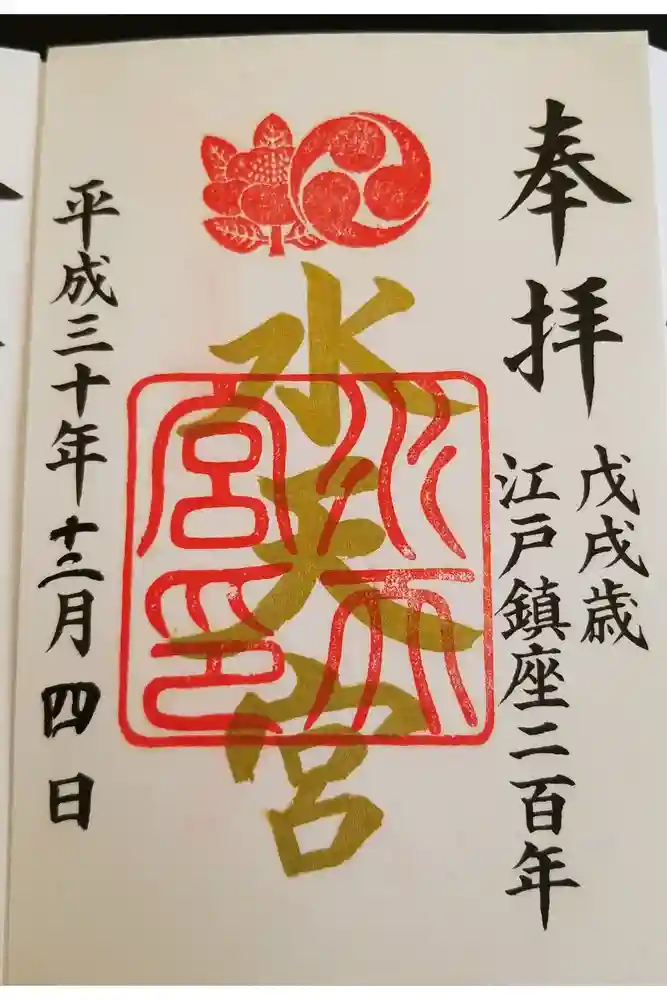 奉拝
戊戌歳
江戸鎮座二百年
水天宮
水天宮印
平成三十年十二月四日